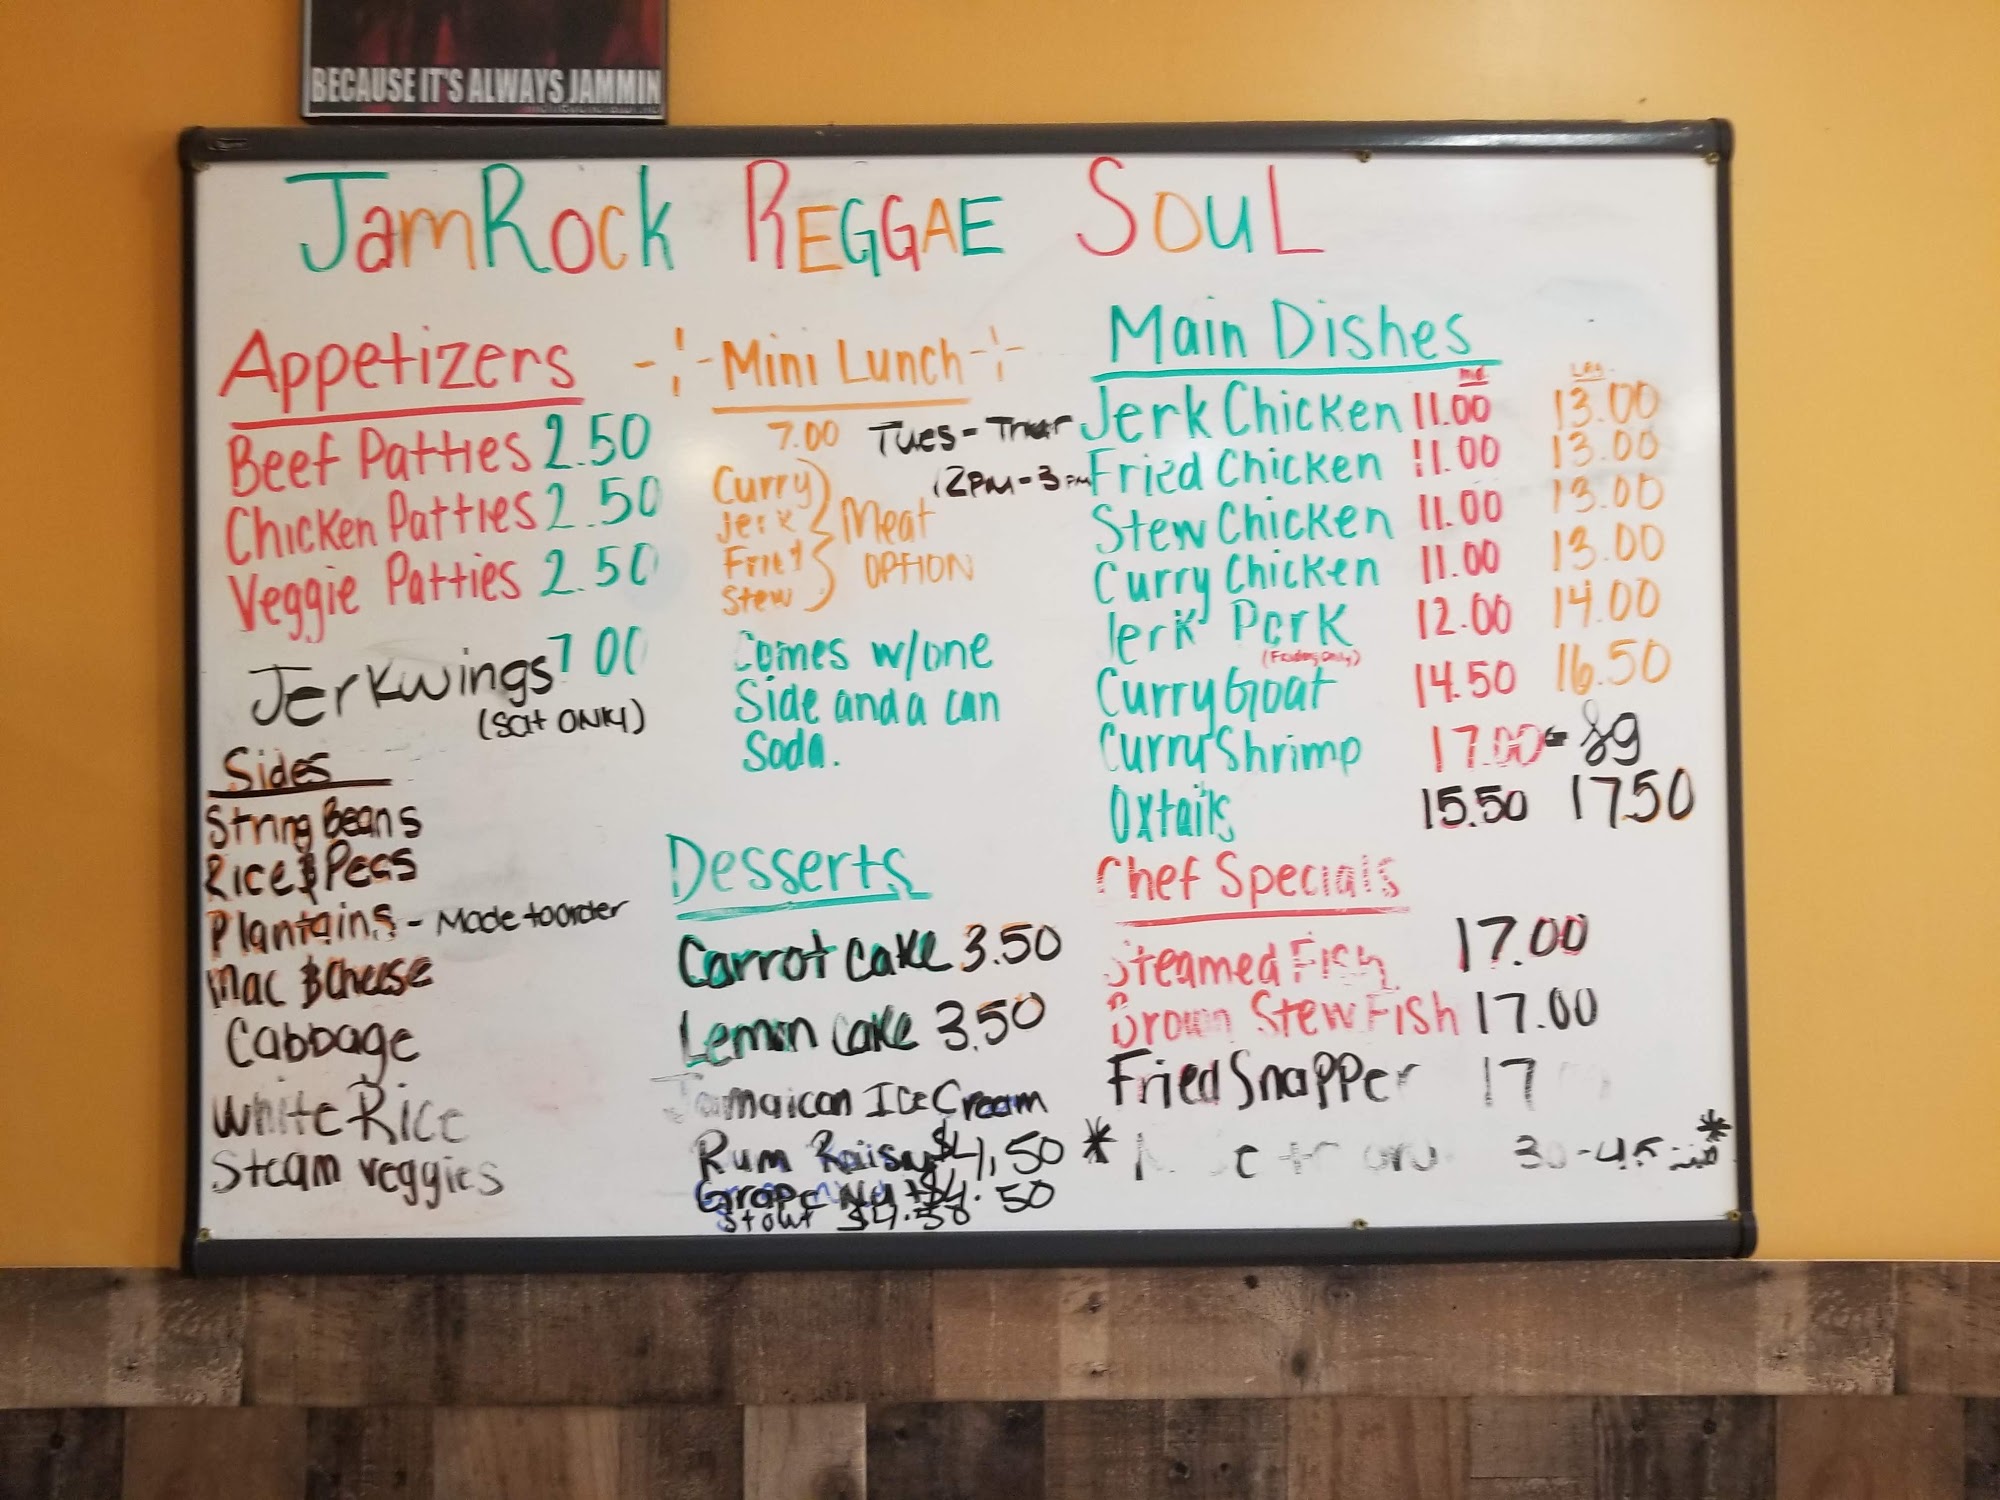 BECAUSE IT'S ALWAYS JAMMIN
JamRock REGGAE SOUL
Appetizers
Beef Patties 2.50
Chicken Patties 2.50
Veggie Patties 2.50
Jerk wings 7 00
(SAT ONLY)
Sides
String Beans
Rice & Peas
Plantains - Made to order
Mac & Cheese
Cabbage
White Rice
Steam veggies
Mini Lunch
7.00 Tues - Thur
12PM - 3PM
Curry
Jerk
Fried
Stew
Meat
OPTION
Comes w/one
Side and a can
Soda.
Desserts
Carrot cake 3.50
Lemon cake 3.50
Jamaican Ice Cream
Rum Raisin $4.50
Grape Nut $4.50
Stout $4.50
Main Dishes
Md. Lrg.
Jerk Chicken 11.00 13.00
Fried Chicken 11.00 13.00
Stew Chicken 11.00 13.00
Curry Chicken 11.00 13.00
Jerk Pork 12.00 14.00
(Friday Only)
Curry Goat 14.50 16.50
Curry Shrimp 17.00 - lg
Oxtails 15.50 17.50
Chef Specials
Steamed Fish 17.00
Brown Stew Fish 17.00
Fried Snapper 17
* 30-45 min *